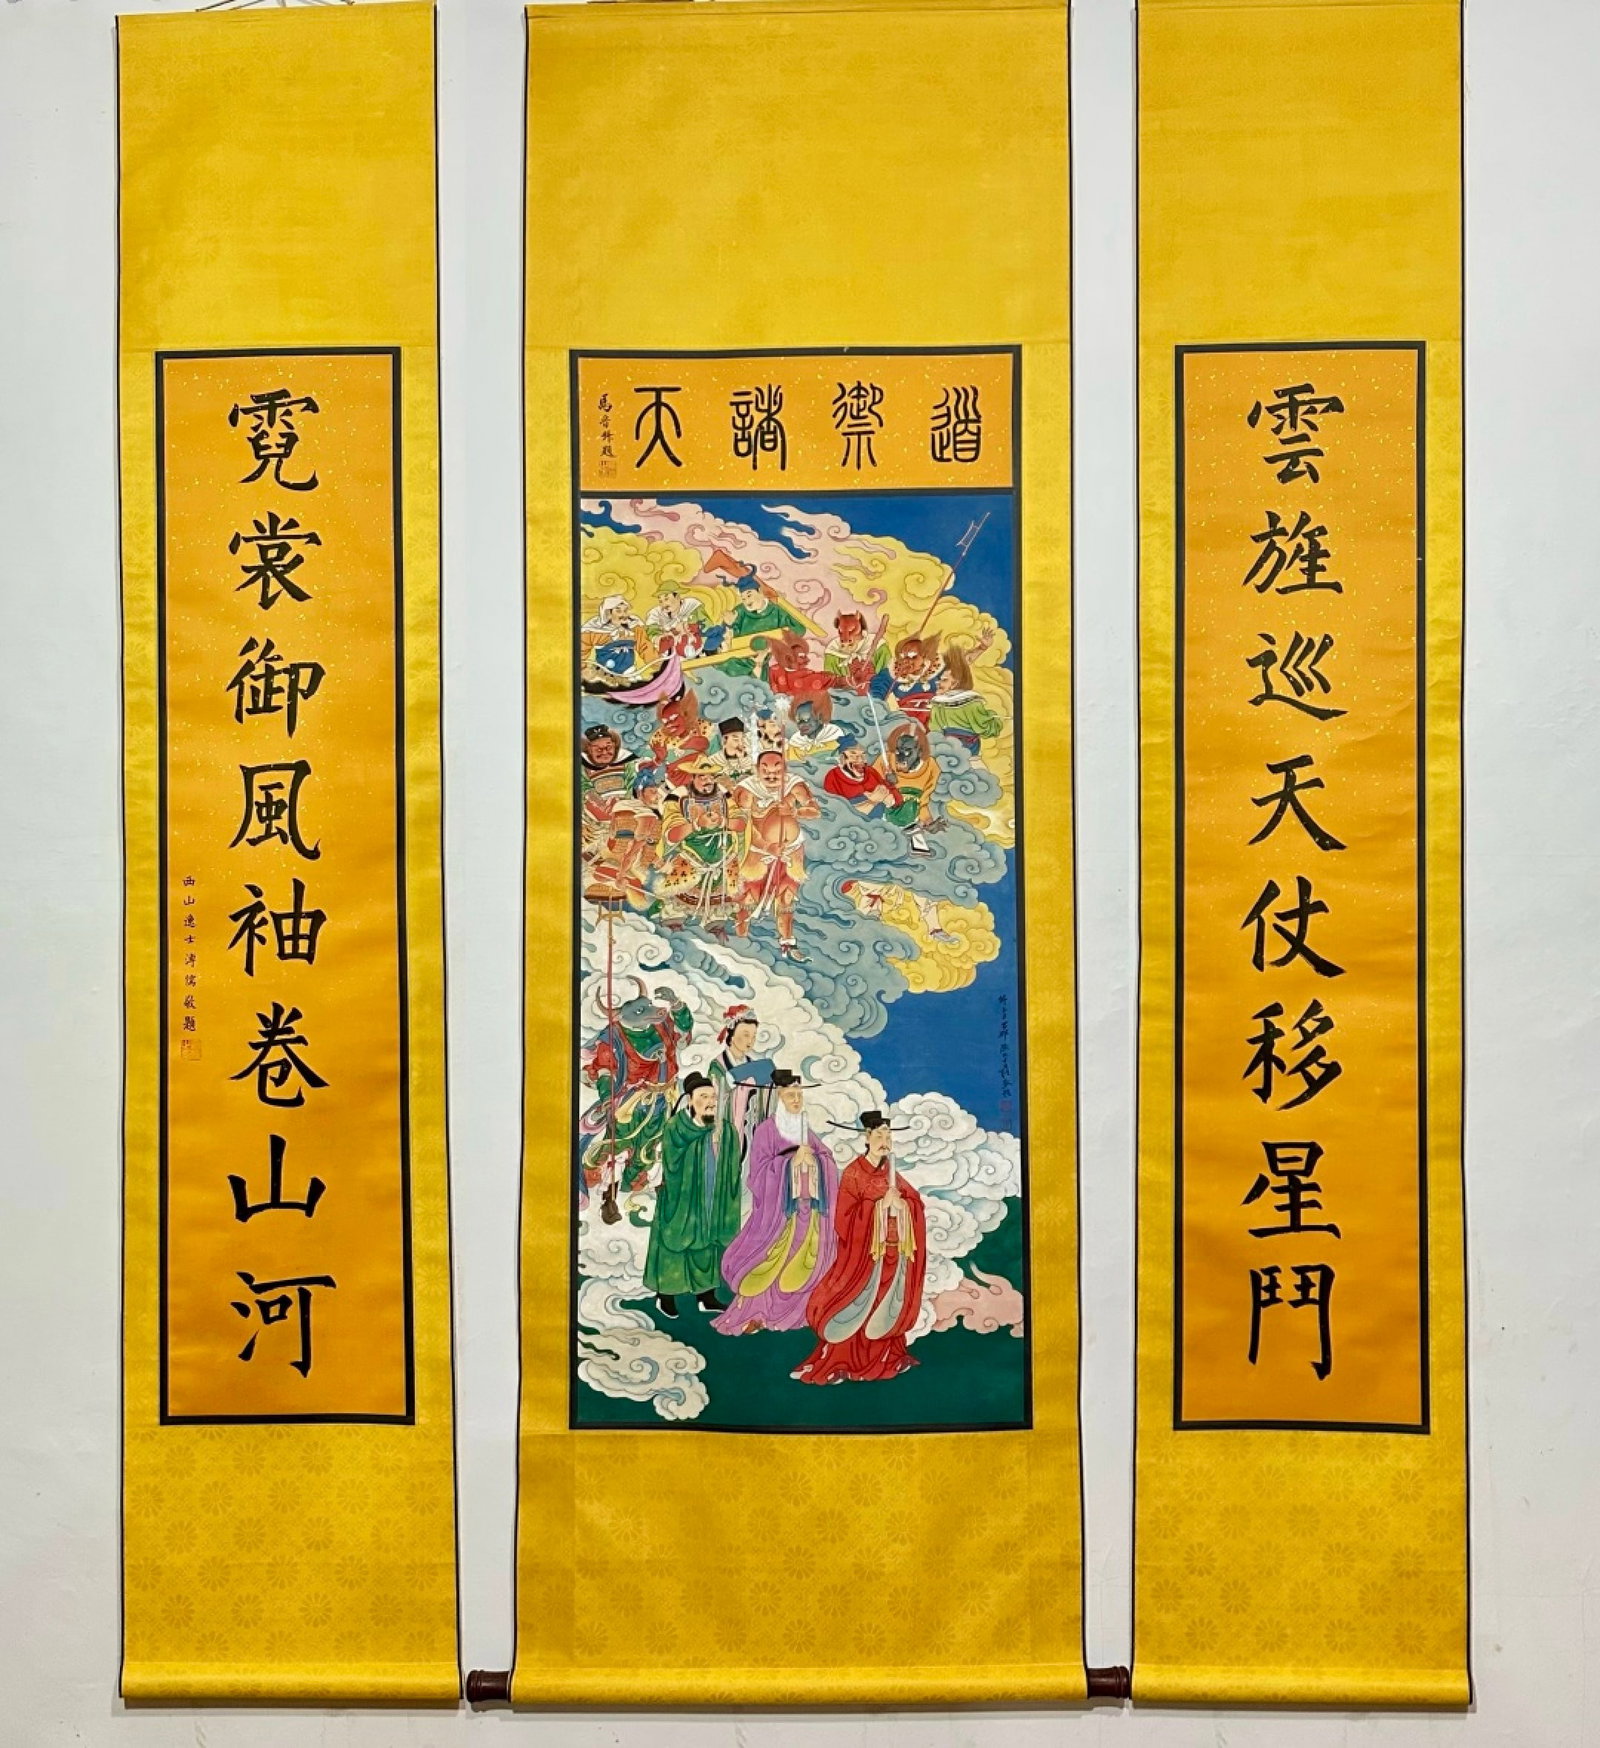 道禦諸天
馬晉拜題
雲旌巡天仗移星鬥
霓裳御風袖卷山河
西山逸士溥儒敬題